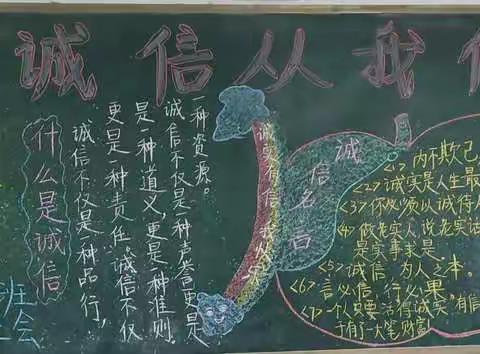 诚信从我
什么是诚信
诚信不仅是一种品行,
更是一种责任。诚信不仅
是一种道义,更是一种准则
诚信不仅是一种声誉更是
一种资源。
班会
诚实有信
诚信名言
<1> 内不欺己,
<2> 诚实是人生最
<3> 你必须以诚待
<4> 做老实人 说老实话
是实事求是.
<5> 诚信 为人之本.
<6> 言必信,行必果
<7> 一个人只要活得诚实"有信
于有一大笔财富